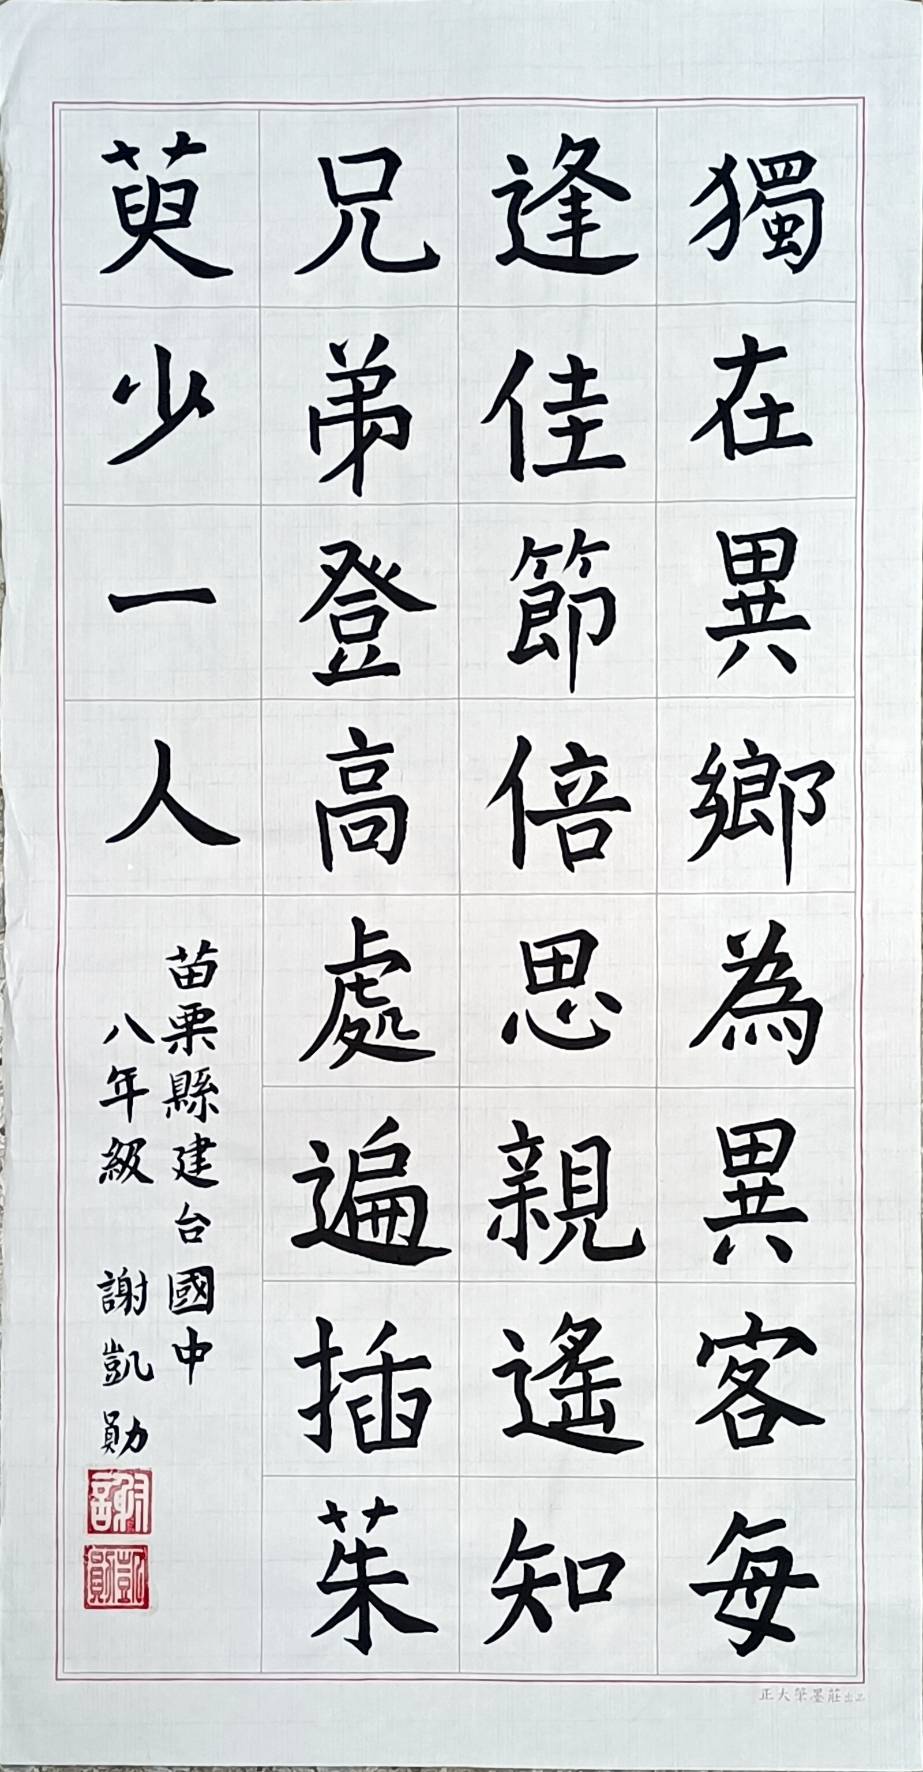 獨在異鄉為異客每
逢佳節倍思親遙知
兄弟登高處遍插茱
萸少一人
苗栗縣建台國中
八年級 謝凱勛
謝
凱勛
正大筆墨莊出品